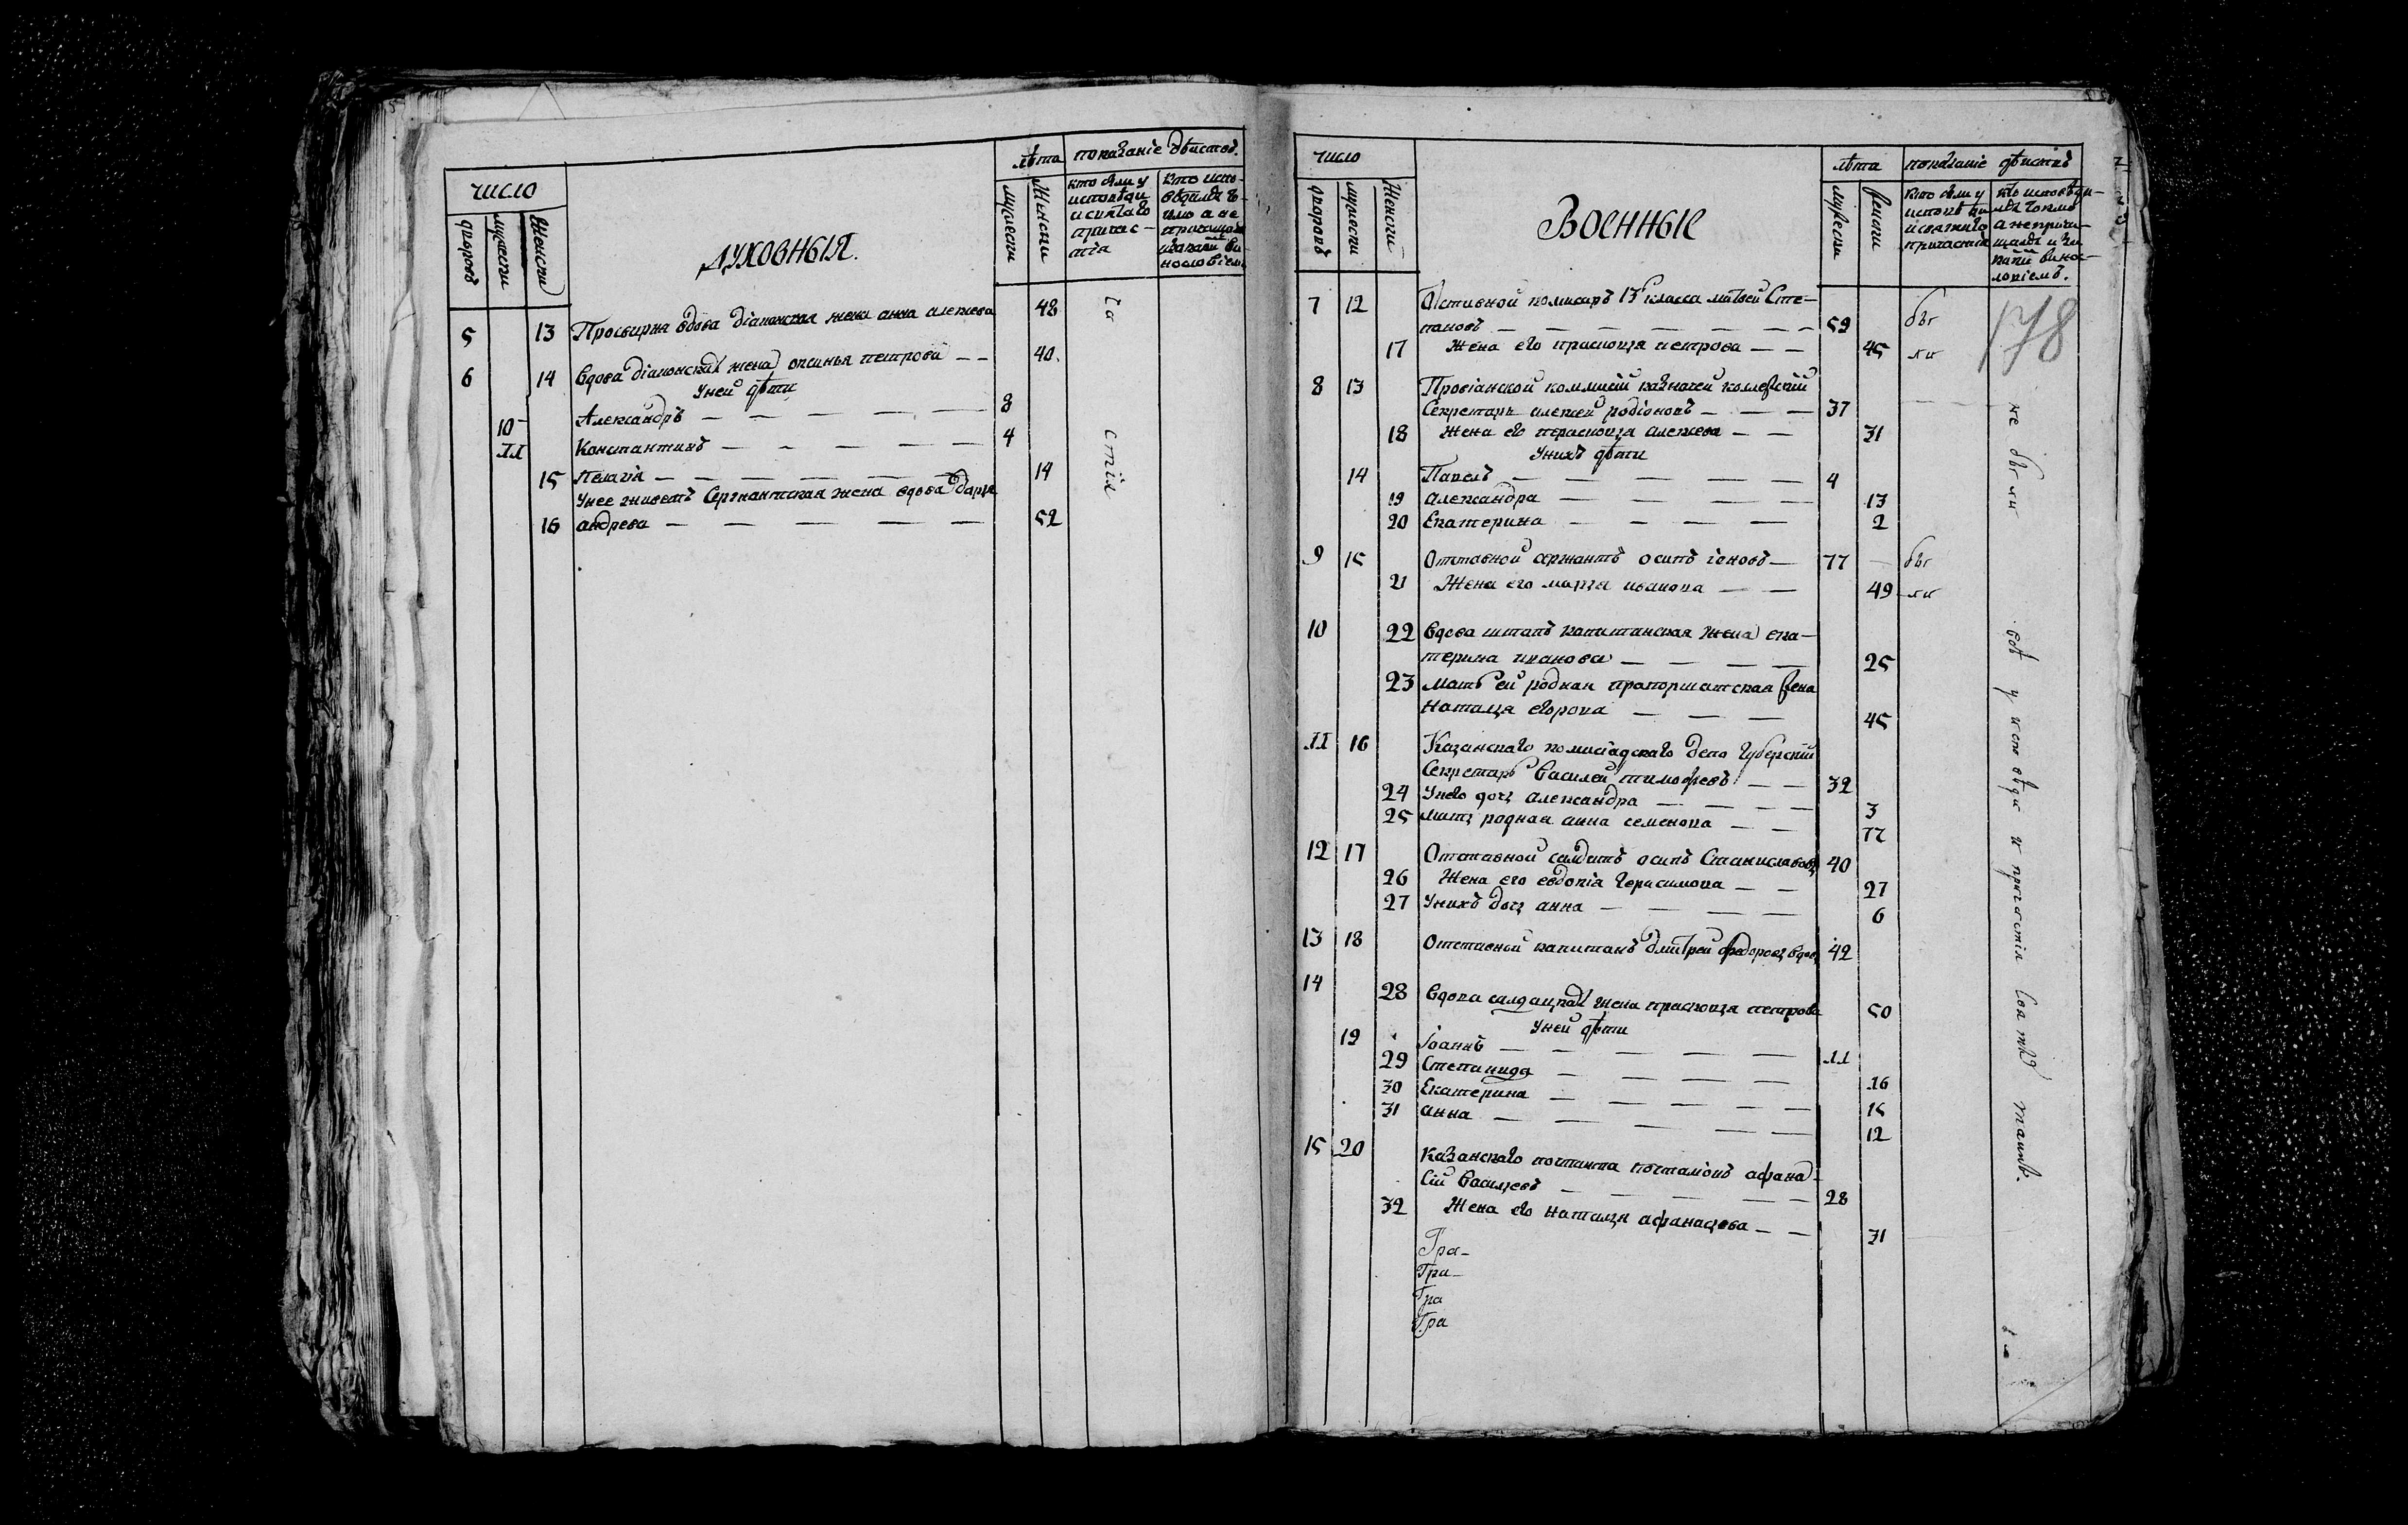 число
лѣта
показанiе дѣиствъ.
дворовъ
мужески
женски
ДУХОВНЫЯ.
мужески
женски
кто были у исповѣди и святаго причастiя
кто исповѣдался токмо а не причащался и за какой винословiемъ
5 13 Просвирня вдова дiаконская жена анна алексеева 48
6 14 Вдова дiаконская жена оксинья петрова — — 40.
Уней дѣти
10 Александръ — — — — 8
11 Константинъ — — — — 4
15 Пелагiя — — — — 14
Унее живетъ Сержантская жена вдова дарья
16 андреева — — — — 52
ча
стiя
число
лѣта
показанiе дѣиствъ
дворовъ
мужески
Женски
ВОЕННЫЕ
мужески
женски
кто были у исповѣди и святаго причастия
кто исповѣдался токмо а не причащался и за какой винословiемъ.
7 12 Отставной комисаръ 13 класса матвей Сте-
пановъ — — — — 59 бы
17 Жена его прасковья петрова — — 45 ли
178
8 13 Провiанской коммисiи казначей коллежский
Секретарь алексей родiоновъ — — — 37
18 Жена его прасковья алексеева — — 31
Унихъ дѣти
14 Павелъ — — — — 4
19 александра — — — — 13
20 Екатерина — — — — 2
9 15 Отставной сержантъ осипъ iоновъ — 77 бы
21 Жена его марья иванова — — 49 ли
10 22 Вдова штапъ капитанская жена ека-
терина иванова — — — — 25
23 мать ей родная прапорщитская жена
Наталья егорова — — — 45
11 16 Казанскаго комисiадскаго депо Губерскiй
Секретарь Василей тимофеевъ — — 32
24 Унего дочь александра — — — 3
25 мать родная анна семенова — — 77
12 17 Отставной салдатъ осипъ Станиславовъ 40
26 Жена его евдокiя Герасимова — — 27
27 Унихъ дочь анна — — — — 6
13 18 Отставной капитанъ дмитрей федоровъ вдовъ 42
14 28 Вдова салдацкая жена прасковья петрова 50
Уней дѣти
19 Iоаннъ — — — — 11
29 Степанида — — — — 16
30 Екатерина — — — — 15
31 анна — — — — 12
15 20 Казанскаго почтамта почталiонъ афана-
сiй Васильевъ — — — — 28
32 Жена его наталья афанасьева — — 31
Гра-
Гра-
Гра
Гра
не были
у исповѣди и причастiя